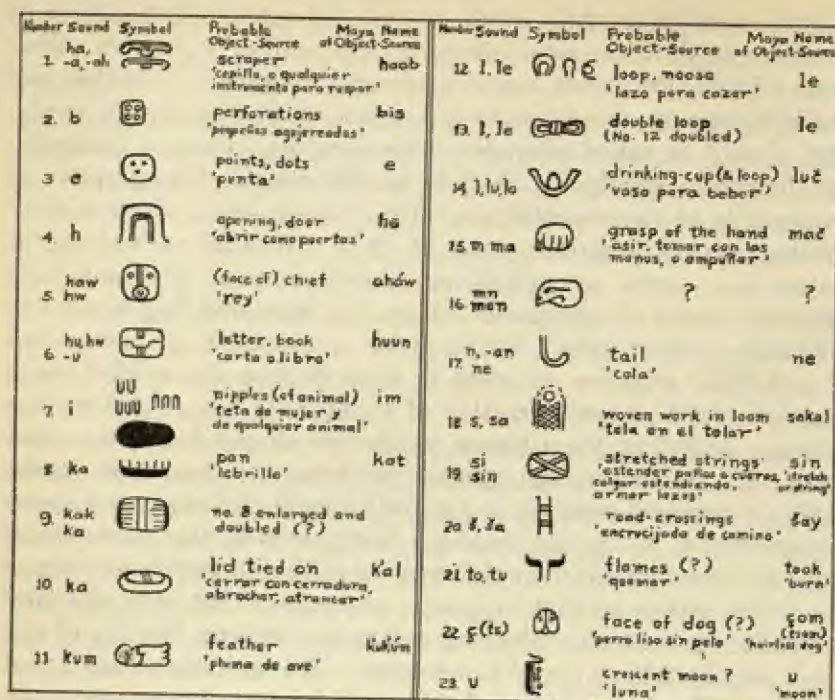 Number Sound Symbol Probable Object-Source Maya Name of Object-Source
1. ha, -a, -ah scraper haab
'cepillo, o qualquier
instrumento para raspar'
2. b perforations bis
'pequeñas agujereadas'
3 e points, dots e
'punta'
4. h opening, door ha
'abrir como puertas'
5. haw hw (face of) chief aháw
'rey'
6. hu, hw -u letter, book huun
'carta o libro'
7. i nipples (of animal) im
'teta de mujer y
de qualquier animal'
8 ka pan kat
'lebrillo'
9. kak ka no. 8 enlarged and
doubled (?)
10. ka lid tied on k'al
'cerrar con cerradura,
abrochar, atrancar'
11. kum feather k'uk'úm
'pluma de ave'
Number Sound Symbol Probable Object-Source Maya Name of Object-Source
12. l, le loop, noose le
'lazo para cazar'
13. l, le double loop le
(No. 12 doubled)
14. l, lu, la drinking-cup (& loop) luč
'vaso para beber'
15. m ma grasp of the hand mač
'asir, tomar con las
manos, o empuñar'
16. mn men ? ?
17. n, -an ne tail ne
'cola'
18 s, sa woven work in loom sakal
'tela en el telar'
19. si sin stretched strings sin
'estender paños o cueros, 'stretch
colgar estendiendo, or string'
armar lazos'
20 š, ša road-crossings šay
'encrucijada de camino'
21 to, tu flames (?) took
'quemar' 'burn'
22 ȿ(ts) face of dog (?) (tsom)
'perro liso sin pelo' 'hairless dog'
23. u crescent moon ? u
'luna' 'moon'